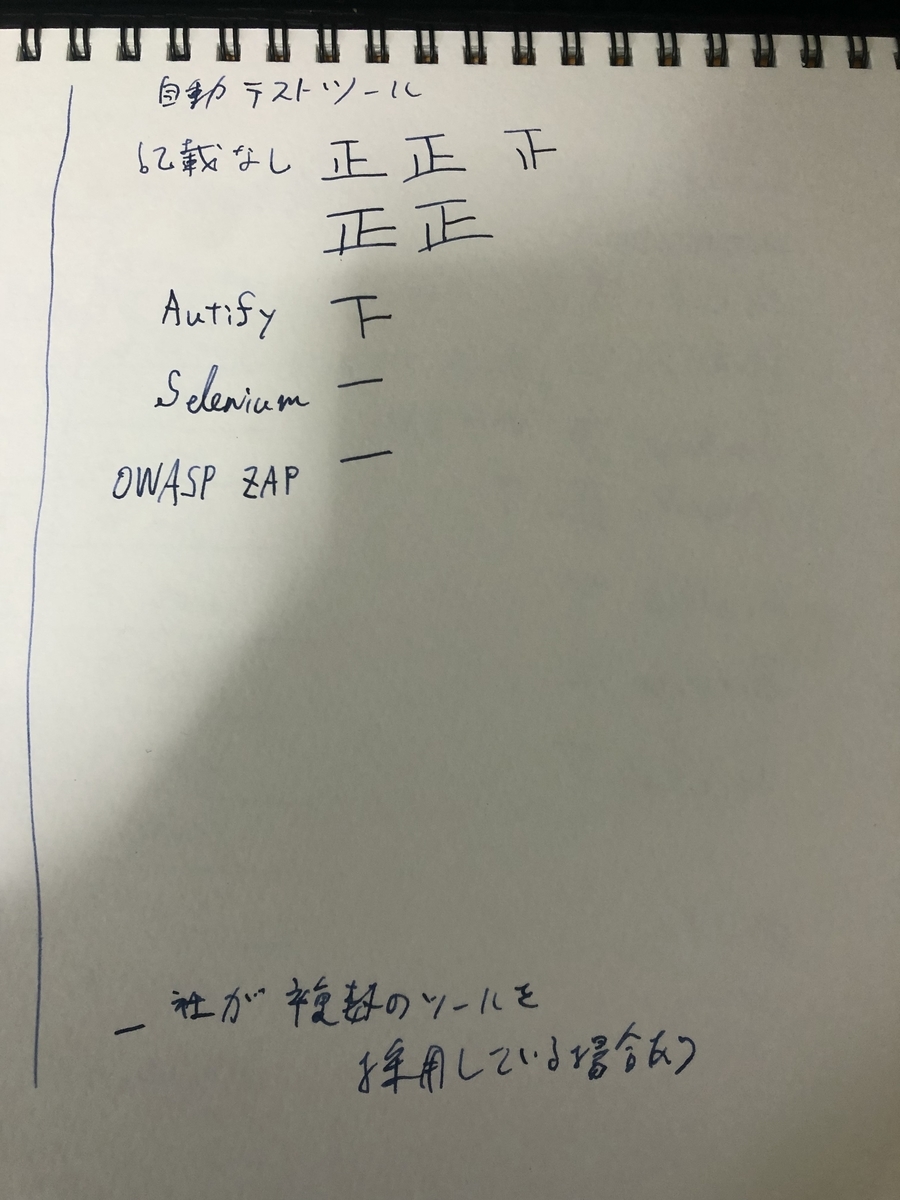 自動テストツール
記載なし 正 正
正 正
Autify 下
Selenium 一
OWASP ZAP 一
一社が複数のツールを
採用している場合あり